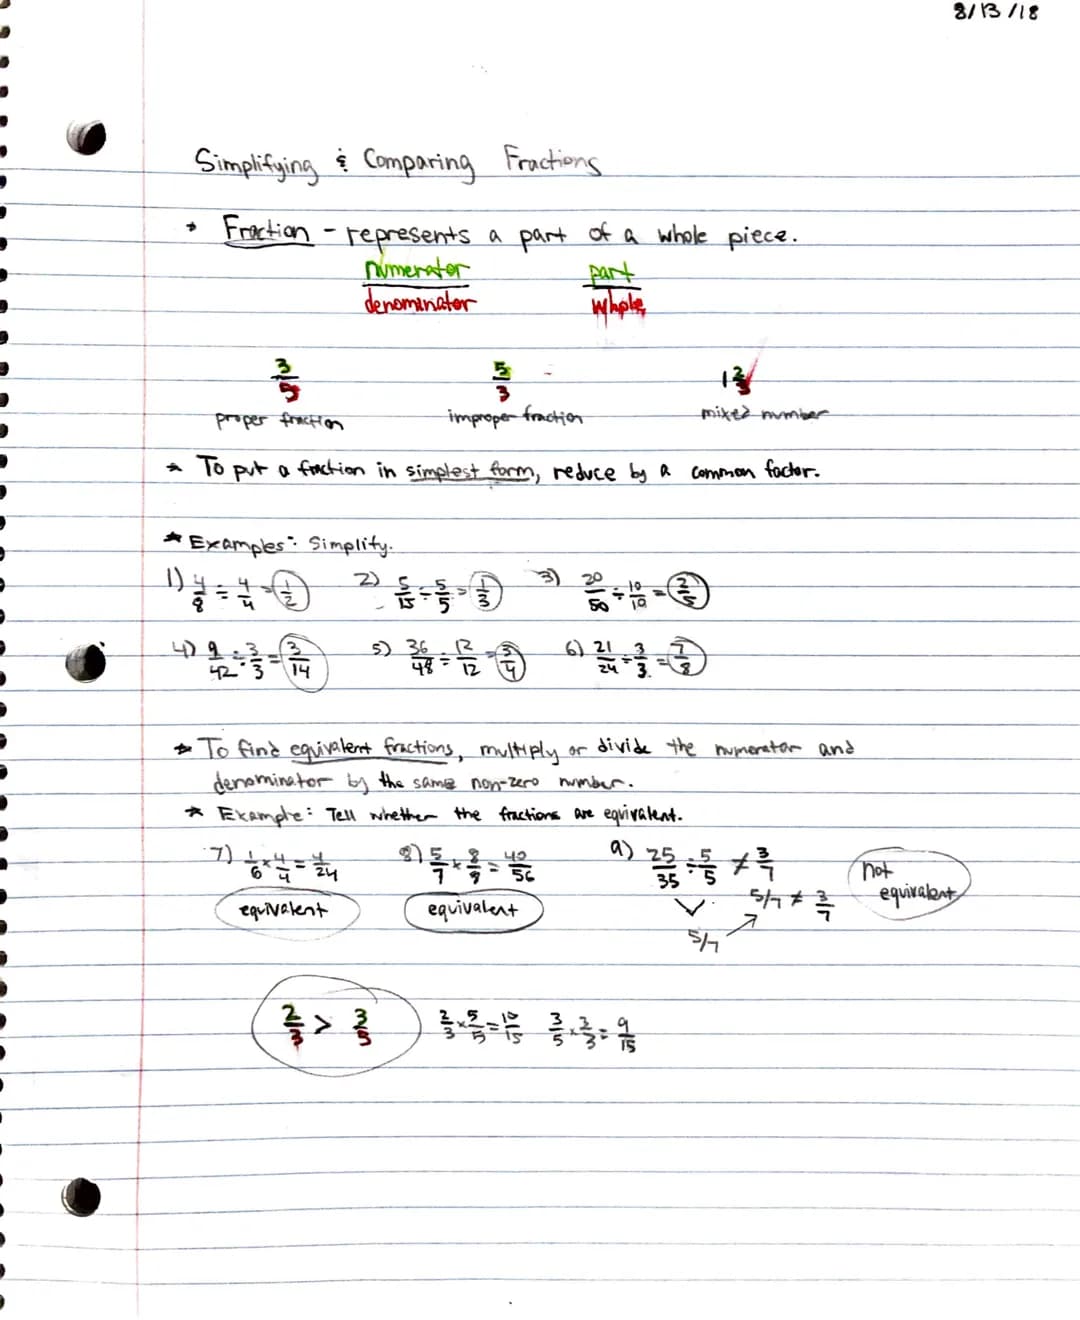 8/13/18
Simplifying & Comparing Fractions
* Fraction - represents a part of a whole piece.
numerator part
denominator whole
3/5 5/3 1 2/3
proper fraction improper fraction mixed number
* To put a fraction in simplest form, reduce by a common factor.
* Examples: Simplify.
1) 4/8 ÷ 4/4 = 1/2 2) 5/15 ÷ 5/5 = 1/3 3) 20/50 ÷ 10/10 = 2/5
4) 9/42 ÷ 3/3 = 3/14 5) 36/48 ÷ 12/12 = 3/4 6) 21/24 ÷ 3/3 = 7/8
* To find equivalent fractions, multiply or divide the numerator and
denominator by the same non-zero number.
* Example: Tell whether the fractions are equivalent.
7) 1/6 × 4/4 = 4/24 8) 5/7 × 8/8 = 40/56 9) 25/35 ÷ 5/5 ≠ 3/7 not
equivalent equivalent 5/7 ≠ 3/7 equivalent
5/7
2/3 > 3/5 2/3 × 5/5 = 10/15 3/5 × 3/3 = 9/15